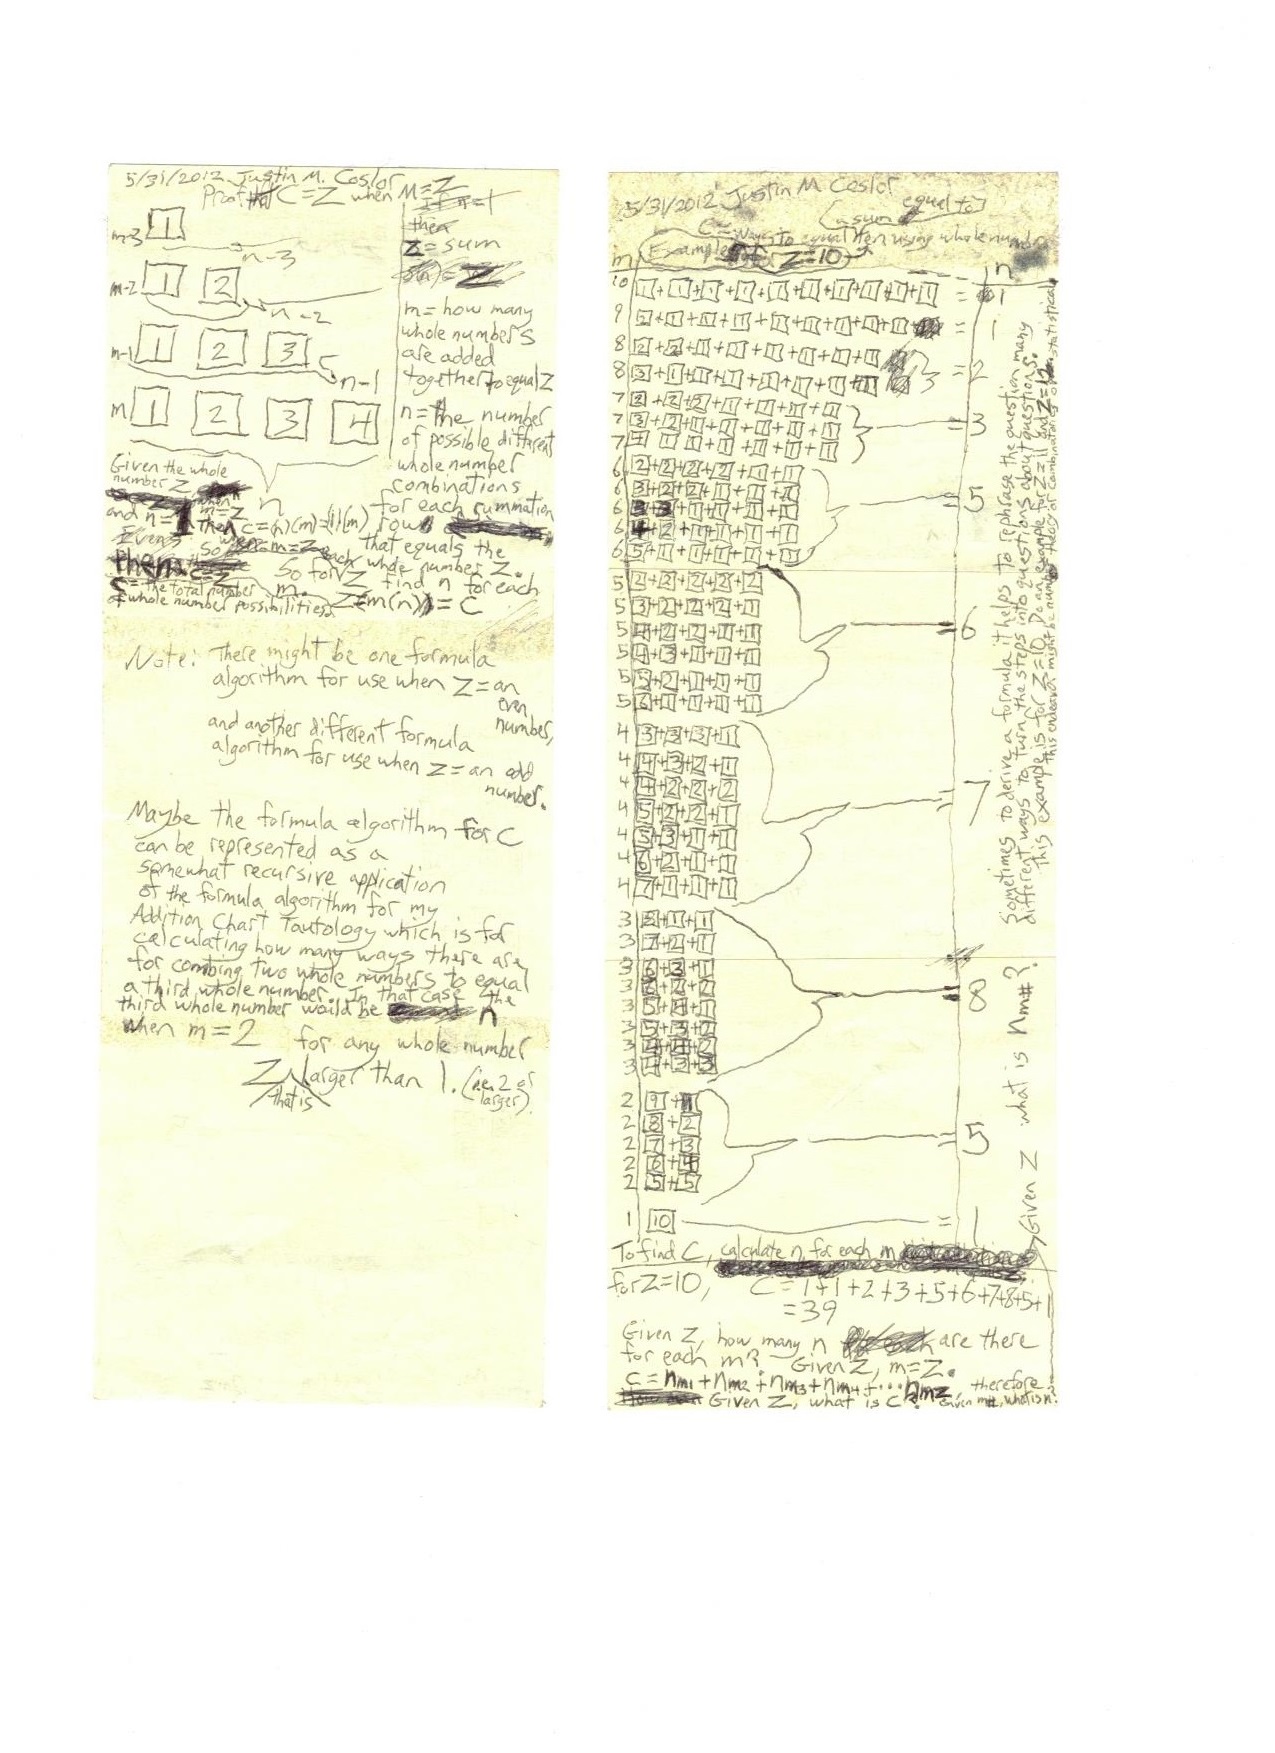 5/31/2012 Justin M. Coslor
Proof that C=Z when M=Z
If n=1
then
Z=sum
m-3 1
n-3
m-2 1 2
n-2
m-1 1 2 3
n-1
m 1 2 3 4
n
m= how many
whole numbers
are added
together to equal Z
n= the number
of possible different
whole number
combinations
for each summation
row
that equals the
whole number Z.
So for each Z find n for each
m. Z=m(n)=C
Given the whole
number Z,
when
m=Z
and n=1 then C=(n)(m)=(1)(m)
So when m=Z
then C=Z
C=the total number
of whole number possibilities
Note: There might be one formula
algorithm for use when Z=an
even
number,
and another different formula
algorithm for use when Z=an odd
number.
Maybe the formula algorithm for C
can be represented as a
somewhat recursive application
of the formula algorithm for my
Addition Chart Tautology which is for
calculating how many ways there are
for combing two whole numbers to equal
a third whole number. In that case the
third whole number would be n
when m=2 for any whole number
Z that is larger than 1. (i.e. 2 or
larger).
5/31/2012 Justin M Coslor
equal to
(a sum of
C=ways to equal ten using whole numbers
Example for Z=10
m n
10 1+1+1+1+1+1+1+1+1+1 = 1
9 2+1+1+1+1+1+1+1+1 = 1
8 2+2+1+1+1+1+1+1
8 3+1+1+1+1+1+1+1 = 2
7 2+2+2+1+1+1+1
7 3+2+1+1+1+1+1 = 3
7 4 1 1+1+1+1+1
6 2+2+2+2+1+1
6 3+2+2+1+1+1
6 3 3 = 5
6 4+2
6 5+1+1+1+1+1
5 2+2+2+2+2
5 3+2+2+2+1
5 4+2+2+1+1 = 6
5 4+3+1+1+1
5 5+2+1+1+1
5 6+1+1+1+1
4 3+3+3+1
4 4+3+2+1
4 4+2+2+2
4 5+2+2+1 = 7
4 5+3+1+1
4 6+2+1+1
4 7+1+1+1
3 8+1+1
3 7+2+1
3 6+3+1
3 6+2+2 = 8
3 5+4+1
3 5+3+2
3 4+4+2
3 4+3+3
2 9+1
2 8+2
2 7+3 = 5
2 6+4
2 5+5
1 10 = 1
To find C, calculate n, for each m
for Z=10, C=1+1+2+3+5+6+7+8+5+1
=39
Given Z, how many n are there
for each m? Given Z, m=Z.
C=nm1+nm2+nm3+nm4+...nmz, therefore
Given Z, what is C? Given m#, what is n?
Given Z what is nm#?
Sometimes to derive a formula it helps to rephrase the question many
different ways to turn the steps into questions about questions.
This example is for Z=10. Do an example for Z=11 and Z=12.
This endeavor might be number theory or combinatorics or statistical.